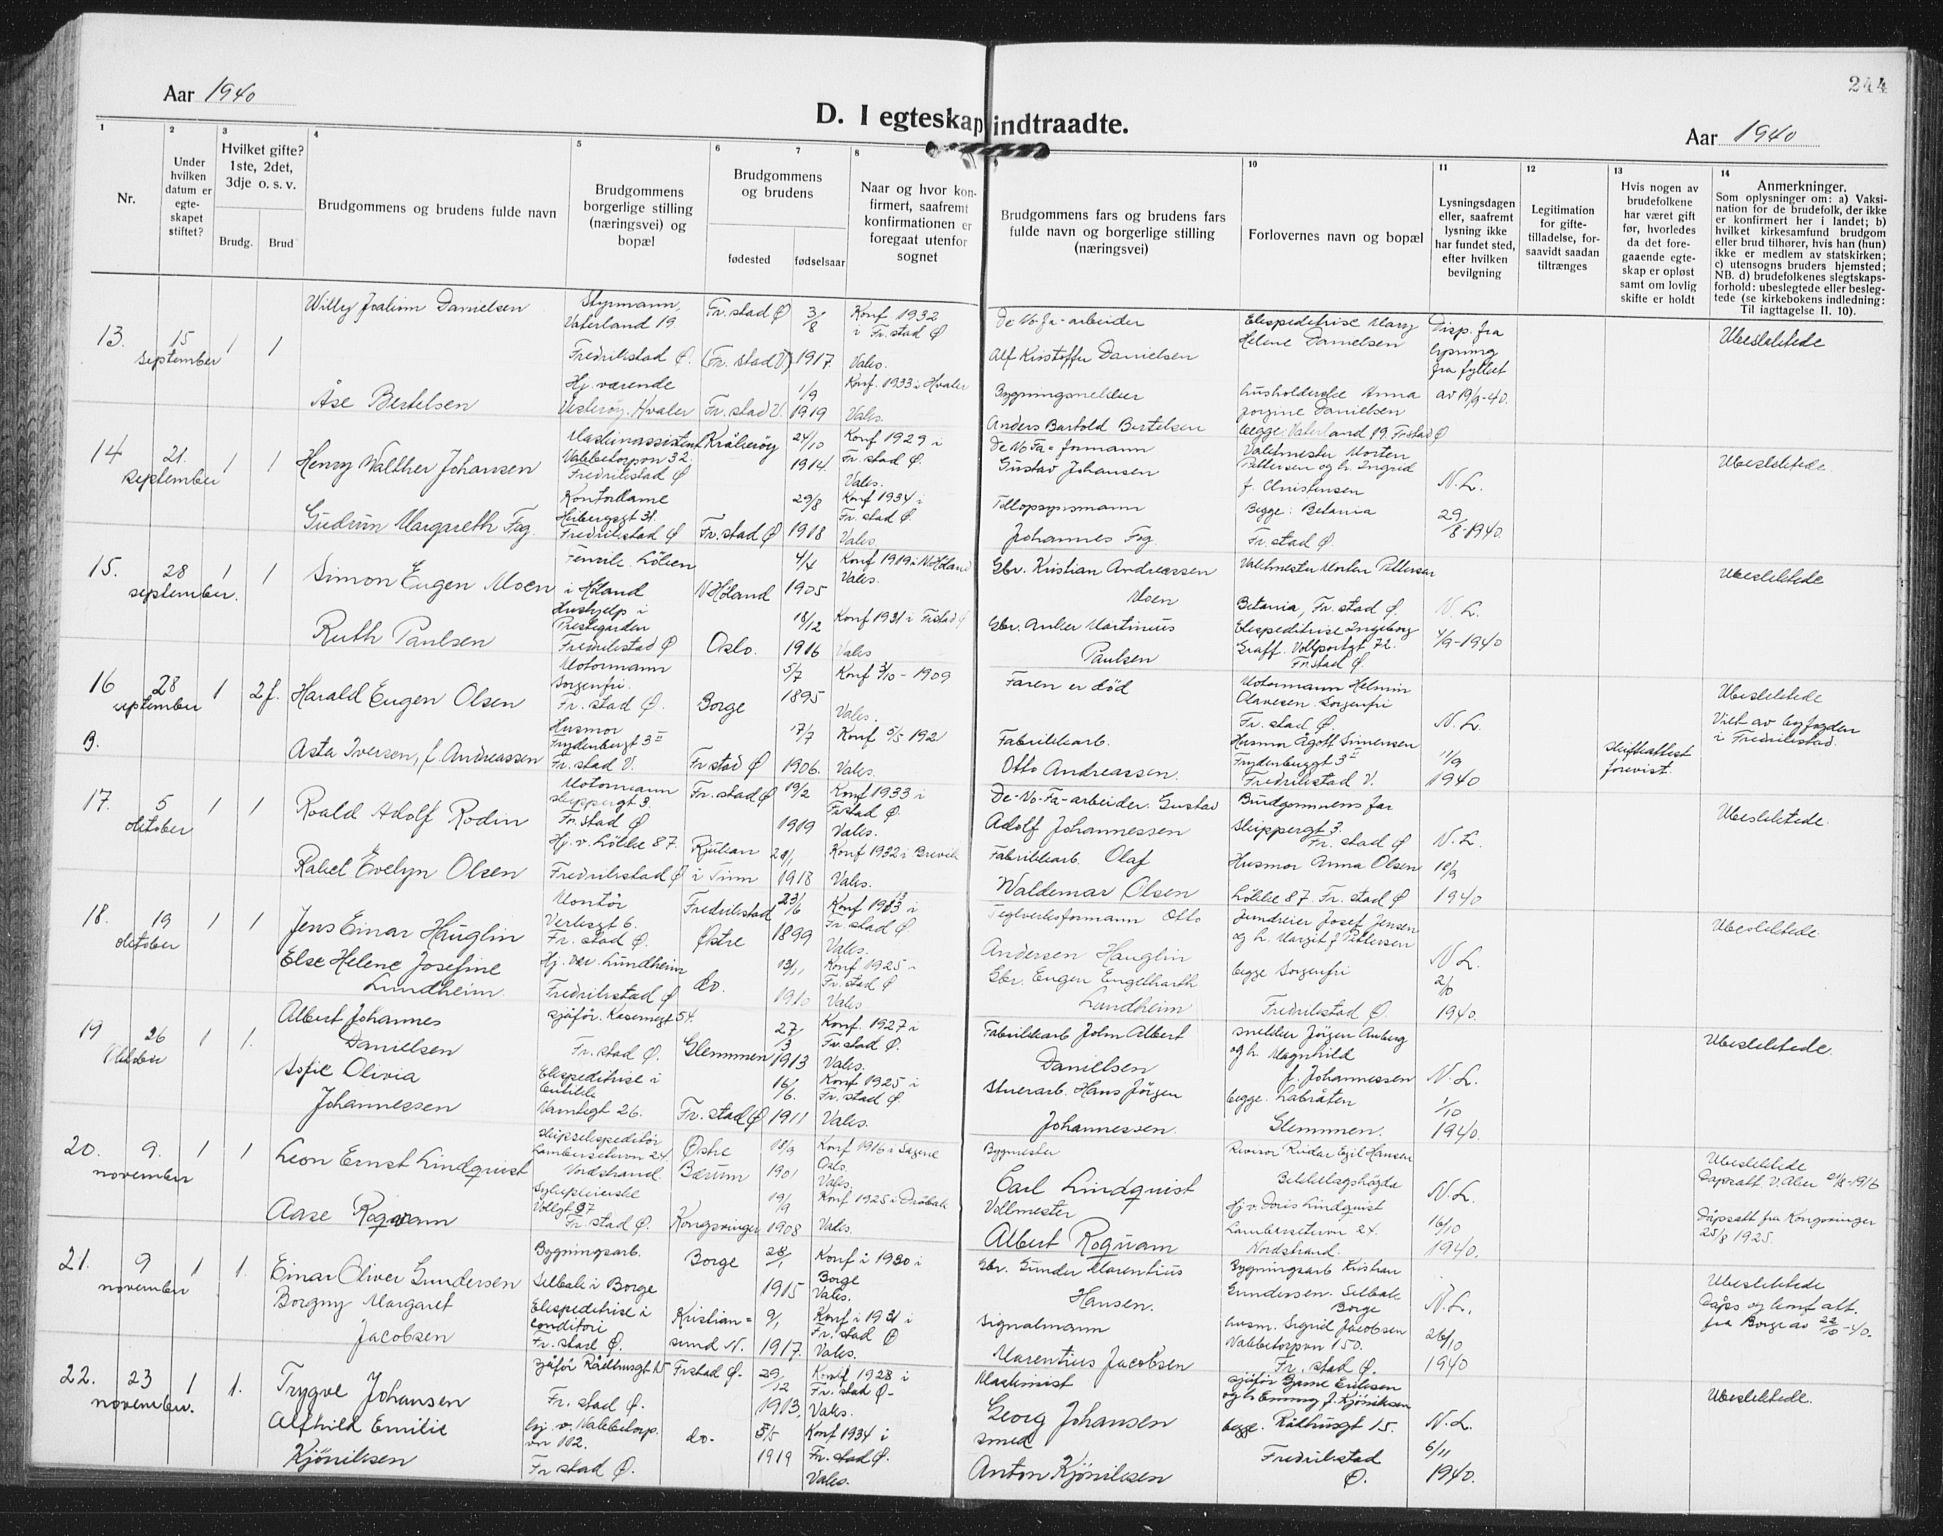 244
Aar 1940
D. I egteskap indtraadte.
Aar 1940
1
Nr.
2
Under
hvilken
datum er
egte-
skapet
stiftet?
3
Hvilket gifte?
1ste, 2det,
3dje o. s. v.
Brudg.
Brud
4
Brudgommens og brudens fulde navn
5
Brudgommens
borgerlige stilling
(næringsvei) og
bopæl
6
7
Brudgommens
og brudens
fødested
fødselsaar
8
Naar og hvor kon-
firmert, saafremt
konfirmationen er
foregaat utenfor
sognet
Brudgommens fars og brudens fars
fulde navn og borgerlige stilling
(næringsvei)
10
Forlovernes navn og bopæl
11
Lysningsdagen
eller, saafremt
lysning ikke
har fundet sted,
efter hvilken
bevilgning
12
Legitimation
for gifte-
tilladelse, for-
saavidt saadan
tiltrænges
13
Hvis nogen av
brudefolkene
har været gift
før, hvorledes
da det fore-
gaaende egte-
skap er opløst
samt om lovlig
skifte er holdt
14
Anmerkninger.
Som oplysninger om: a) Vaksi-
nation for de brudefolk, der ikke
er konfirmert her i landet; b)
hvilket kirkesamfund brudgom
eller brud tilhører, hvis han (hun)
ikke er medlem av statskirken;
c) utensogns bruders hjemsted;
NB. d) brudefolkenes slegtskaps-
forhold: ubeslegtede eller besleg-
tede (se kirkebokens indledning:
Til iagttagelse II. 10).
13.
15
september
1
1
Willy Joakim Danielsen
Styrmann,
Vaterland 19
Fredrikstad Ø.
Fr.stad Ø
(Fr. stad V.)
3/8
1917.
Konf 1932
i Fr.stad Ø
Vaks.
De No Fa-arbeider
Alf Kristoffer Danielsen
Ekspeditrise Mary
Helene Danielsen
Disp. fra
lysning
fra fylket
av 19/9-40.
Ubeslektede
Åse Bertelsen
Hj. værende
Vesterøy. Hvaler
Fr. stad V.
1/9
1919
Konf. 1933 i Hvaler
Vaks.
Bygningssnekker
Anders Bartold Bertelsen
husholderske Anna
Jorgine Danielsen
begge Vaterland 19. Fr.stad Ø
14
21.
september
1
1
Henry Walther Johansen
Maskinassistent
Vabbetorpvn 32.
Fredrikstad Ø
Kråkerøy
24/10
1914.
Konf 1929 i
Fr. stad Ø.
Vaks.
De No Fa-formann
Gustav Johansen
Vaktmester Morten
Pettersen og h. Ingrid
f. Christensen
N. L.
Ubeslektede
Gudrun Margareth Fog.
Kontordame
Heibergsgt 31.
Fredrikstad Ø
Fr. stad Ø
29/8
1918
Konf 1934 i
Fr. stad Ø.
Vaks.
Tilsynsmann
Johannes Fog.
Begge: Betania
Fr. stad Ø.
29/8-1940.
15.
28
september.
1
1
Simon Eugen Moen
i Høland
N. Høland
4/4
1905
Konf 1919 i N. Høland
Vaks.
Gbr. Kristian Andreassen
Moen
Vaktmester Morten Pettersen
Betania, Fr. stad Ø.
N. L.
Ubeslektede
Ruth Paulsen
Hushjelp i
Prestegården
Fredrikstad Ø
Oslo.
18/12
1916
Konf 1931 i Fr.stad Ø
Vaks
Gbr. Anker Martinius
Paulsen
Ekspeditrise Ingeborg
Graff. Vollportgt 72.
Fr.stad Ø.
4/9-1940
16
28
september
B.
1
2 f.
Harald Eugen Olsen
Motormann
Sorgenfri.
Fr. stad Ø.
Borge
5/7
1895
Konf 3/10-1909
Vaks.
Faren er død
Motormann Helmin
Olavesen. Sorgenfri
Fr. stad Ø.
N. L
Ubeslektede
Viet av byfogden
i Fredrikstad.
Asta Iversen, f. Andreassen
Husmor
Frydenbergt 3 II
Fr. stad V.
Fr stad Ø
17/7
1906.
Konf 5/5 1921
Vaks.
Fabrikkarb.
Otto Andreassen.
Husmor Ågott Simensen
Frydenberggt 3 II
Fredrikstad V.
11/9
1940
skifteattest
forevist.
17.
5
oktober
1
1
Roald Adolf Rodin
Motormann
Skippergt 3.
Fr. stad Ø
Fr. stad Ø
19/2
1919
Konf 1933 i
Fr stad Ø
Vaks.
De-No-Fa-arbeider. Gustav
Adolf Johannessen
Burdgommens far
Skippergt 3.
Fr. stad Ø
N. L.
Ubeslektede.
Rakel Evelyn Olsen
Hj. v. Lökke 87.
Fredrikstad Ø
Rjukan
i Tinn
28/1
1918
Konf 1932 i Brevik
Vaks.
Fabrikkarb. Olaf
Waldemar Olsen
Husmor Anna Olsen
Lökke 87. Fr. stad Ø
10/9
1940
18.
19
oktober
1
1
Jens Einar Hauglin
Montör
Verksgt 6.
Fr. stad Ø.
Fredrikstad
Østre
23/6
1899
Fr. stad Ø
Vaks.
Teglverksformann Otto
Andersen Hauglin
Josef Jensen
og h. Margit f Pettersen
N L.
Ubeslektede
Else Helene Josefine
Lundheim.
Hj. vær. Lundheim
Fredrikstad Ø
do.
13/11
1910
Konf 1925 i
Fr. stad Ø
Vaks
Gbr. Eugen Engelharth
Lundheim
begge Sorgenfri
Fredrikstad Ø.
2/10
1940.
19
26
Oktober
1
1.
Albert Johannes
Danielsen
sjåför. Kasernegt 54
Fr. stad Ø.
Glemmen
27/3
1913
Konf. 1927 i
Fr. stad Ø.
Vaks.
Fabrikkarb John Albert
Danielsen
snekker Jörgen Amberg
og h. Magnhild
f. Johannessen
N. L.
Ubeslektede.
Sofie Olivia
Johannessen
Ekspeditrise i
butikk
Vamtigt 26.
Fr. stad Ø
16/6.
1911
Konf 1925 i
Fr. stad Ø.
Vaks.
Stuerarb. Hans Jörgen
Johannessen.
begge. Labråten
Glemmen.
1/10
1940.
20.
9.
november
1
1
Leon Ernst Lindquist
skipsekspeditör
Lambersetervn 24.
Nordstrand.
Østre
Bærum
18/9
1901
Konf 1916 i Sagene
Oslo.
Vaks.
Bygmester
Carl Lindquist
Revisor Reidar Egil Hansen
Bekkelagshögda
N. L.
Ubeslektede
Dåpsatt. v. Aker 21/6-1916
Aase Roquam
Sykepleierske
Vollgt 97
Fr. stad Ø.
Kongsvinger
19/9
1908
Konf 1925 i Dröbak
Vaks.
Vollmester
Albert Roquam
Hj v. Doris Lindquist
Lambersetervn 24.
Nordstrand.
16/10
1940.
Dåpsatt fra Kongsvinger
25/8 1925.
21.
9
november
1
1.
Einar Oliver Gundersen
Bygningsarb.
Selbak i Borge
Borge
28/1
1915
Konf i 1930 i
Borge
Vaks.
Gbr. Gunder Marentius
Hansen.
Bygningsarb Kristian
Gundersen. Selbak
Borge
N. L.
Ubeslektede
Dåps og konf att.
fra Borge av 22/10-40.
Borgny Margaret
Jacobsen
Ekspeditrise i
conditori
Fr. stad Ø.
Kristian-
sund N.
9/1
1917.
Konf i 1931 i
Fr. stad Ø
Vaks.
signalmann
Marentius Jacobsen
husm. Sigrid Jacobsen
Vabbetorpvn 150.
Fr. stad Ø.
26/10
1940
22.
23
november.
1
1.
Trygve Johansen
sjåför Rådhusgt 15
Fr. stad Ø.
Fr.stad Ø.
29/12
1913.
Konf 1928 i
Fr. stad Ø-
Vaks.
Maskinist
Georg Johansen
sjåför Bjarne Eriksen
og h Emmy f. Kjöniksen
N. L.
Ubeslektede.
Alfhild Emilie
Kjöniksen
hj. v. Vabbetorp.
vn 102.
Fr stad Ø.
do.
5/5
1919
Konf 1934 i
Fr. stad Ø.
Vaks.
smed
Anton Kjöniksen
begge. Rådhusgt 15.
Fredrikstad
Ø.
6/11
1940.